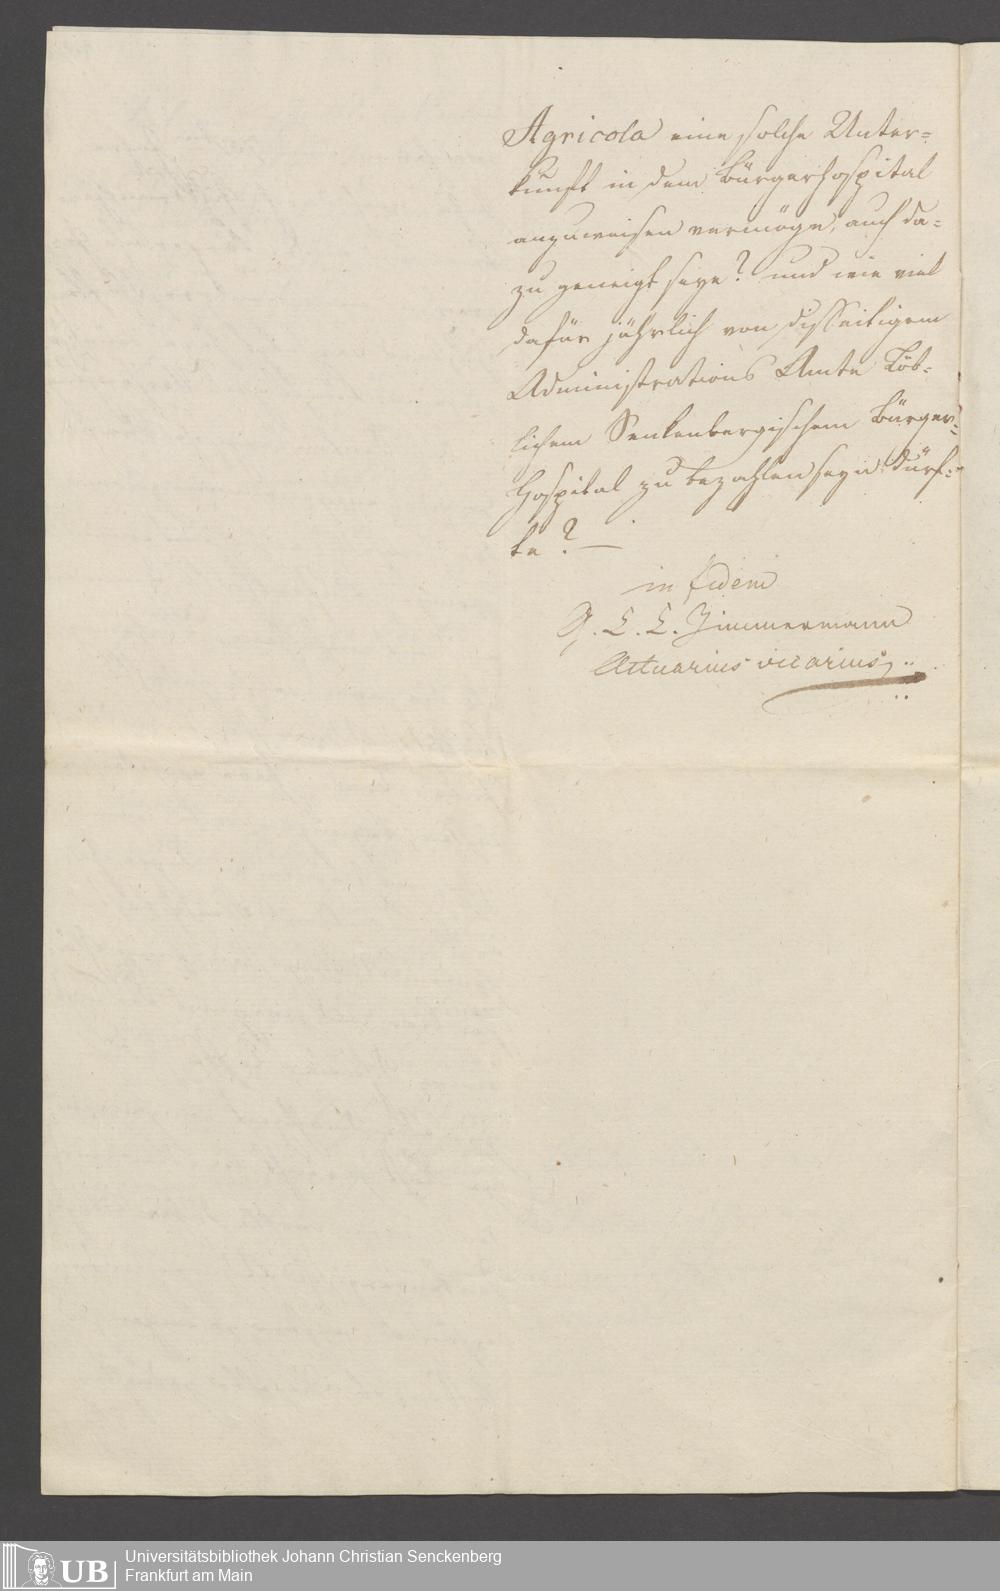 Agricola eine solche Unter=
kunft in dem Bürgerhospital
anzuweisen vermöge, auch da=
zu geneigt seye? und wie viel
dafür jährlich von disseitigem
Administrations Amte Löb=
lichem Senkenbergischem Bürger=
Hospital zu bezahlen seyn dürf=
te? —
in fidem
G. L. L. Zimmermann
Actuarius vicarius
UB
Universitätsbibliothek Johann Christian Senckenberg
Frankfurt am Main